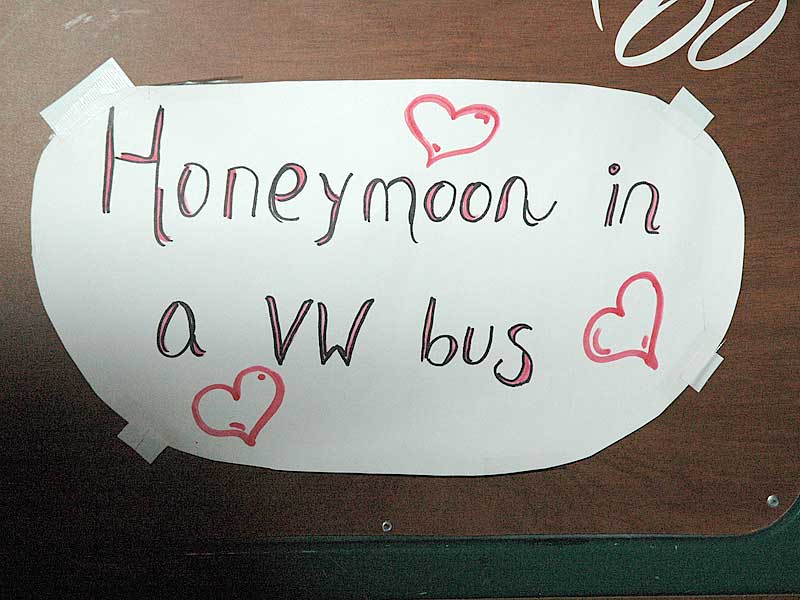 Honeymoon in
a VW bus